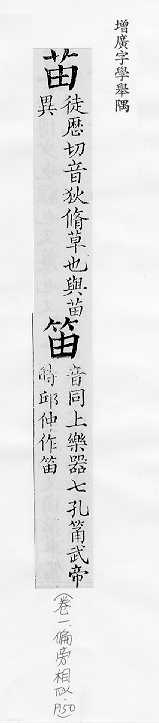 增廣字學舉隅
苖
徒歴切音狄脩草也與苗
異
笛
音同上樂器七孔筩武帝
時邱仲作笛
(卷一、偏旁相似.P50)